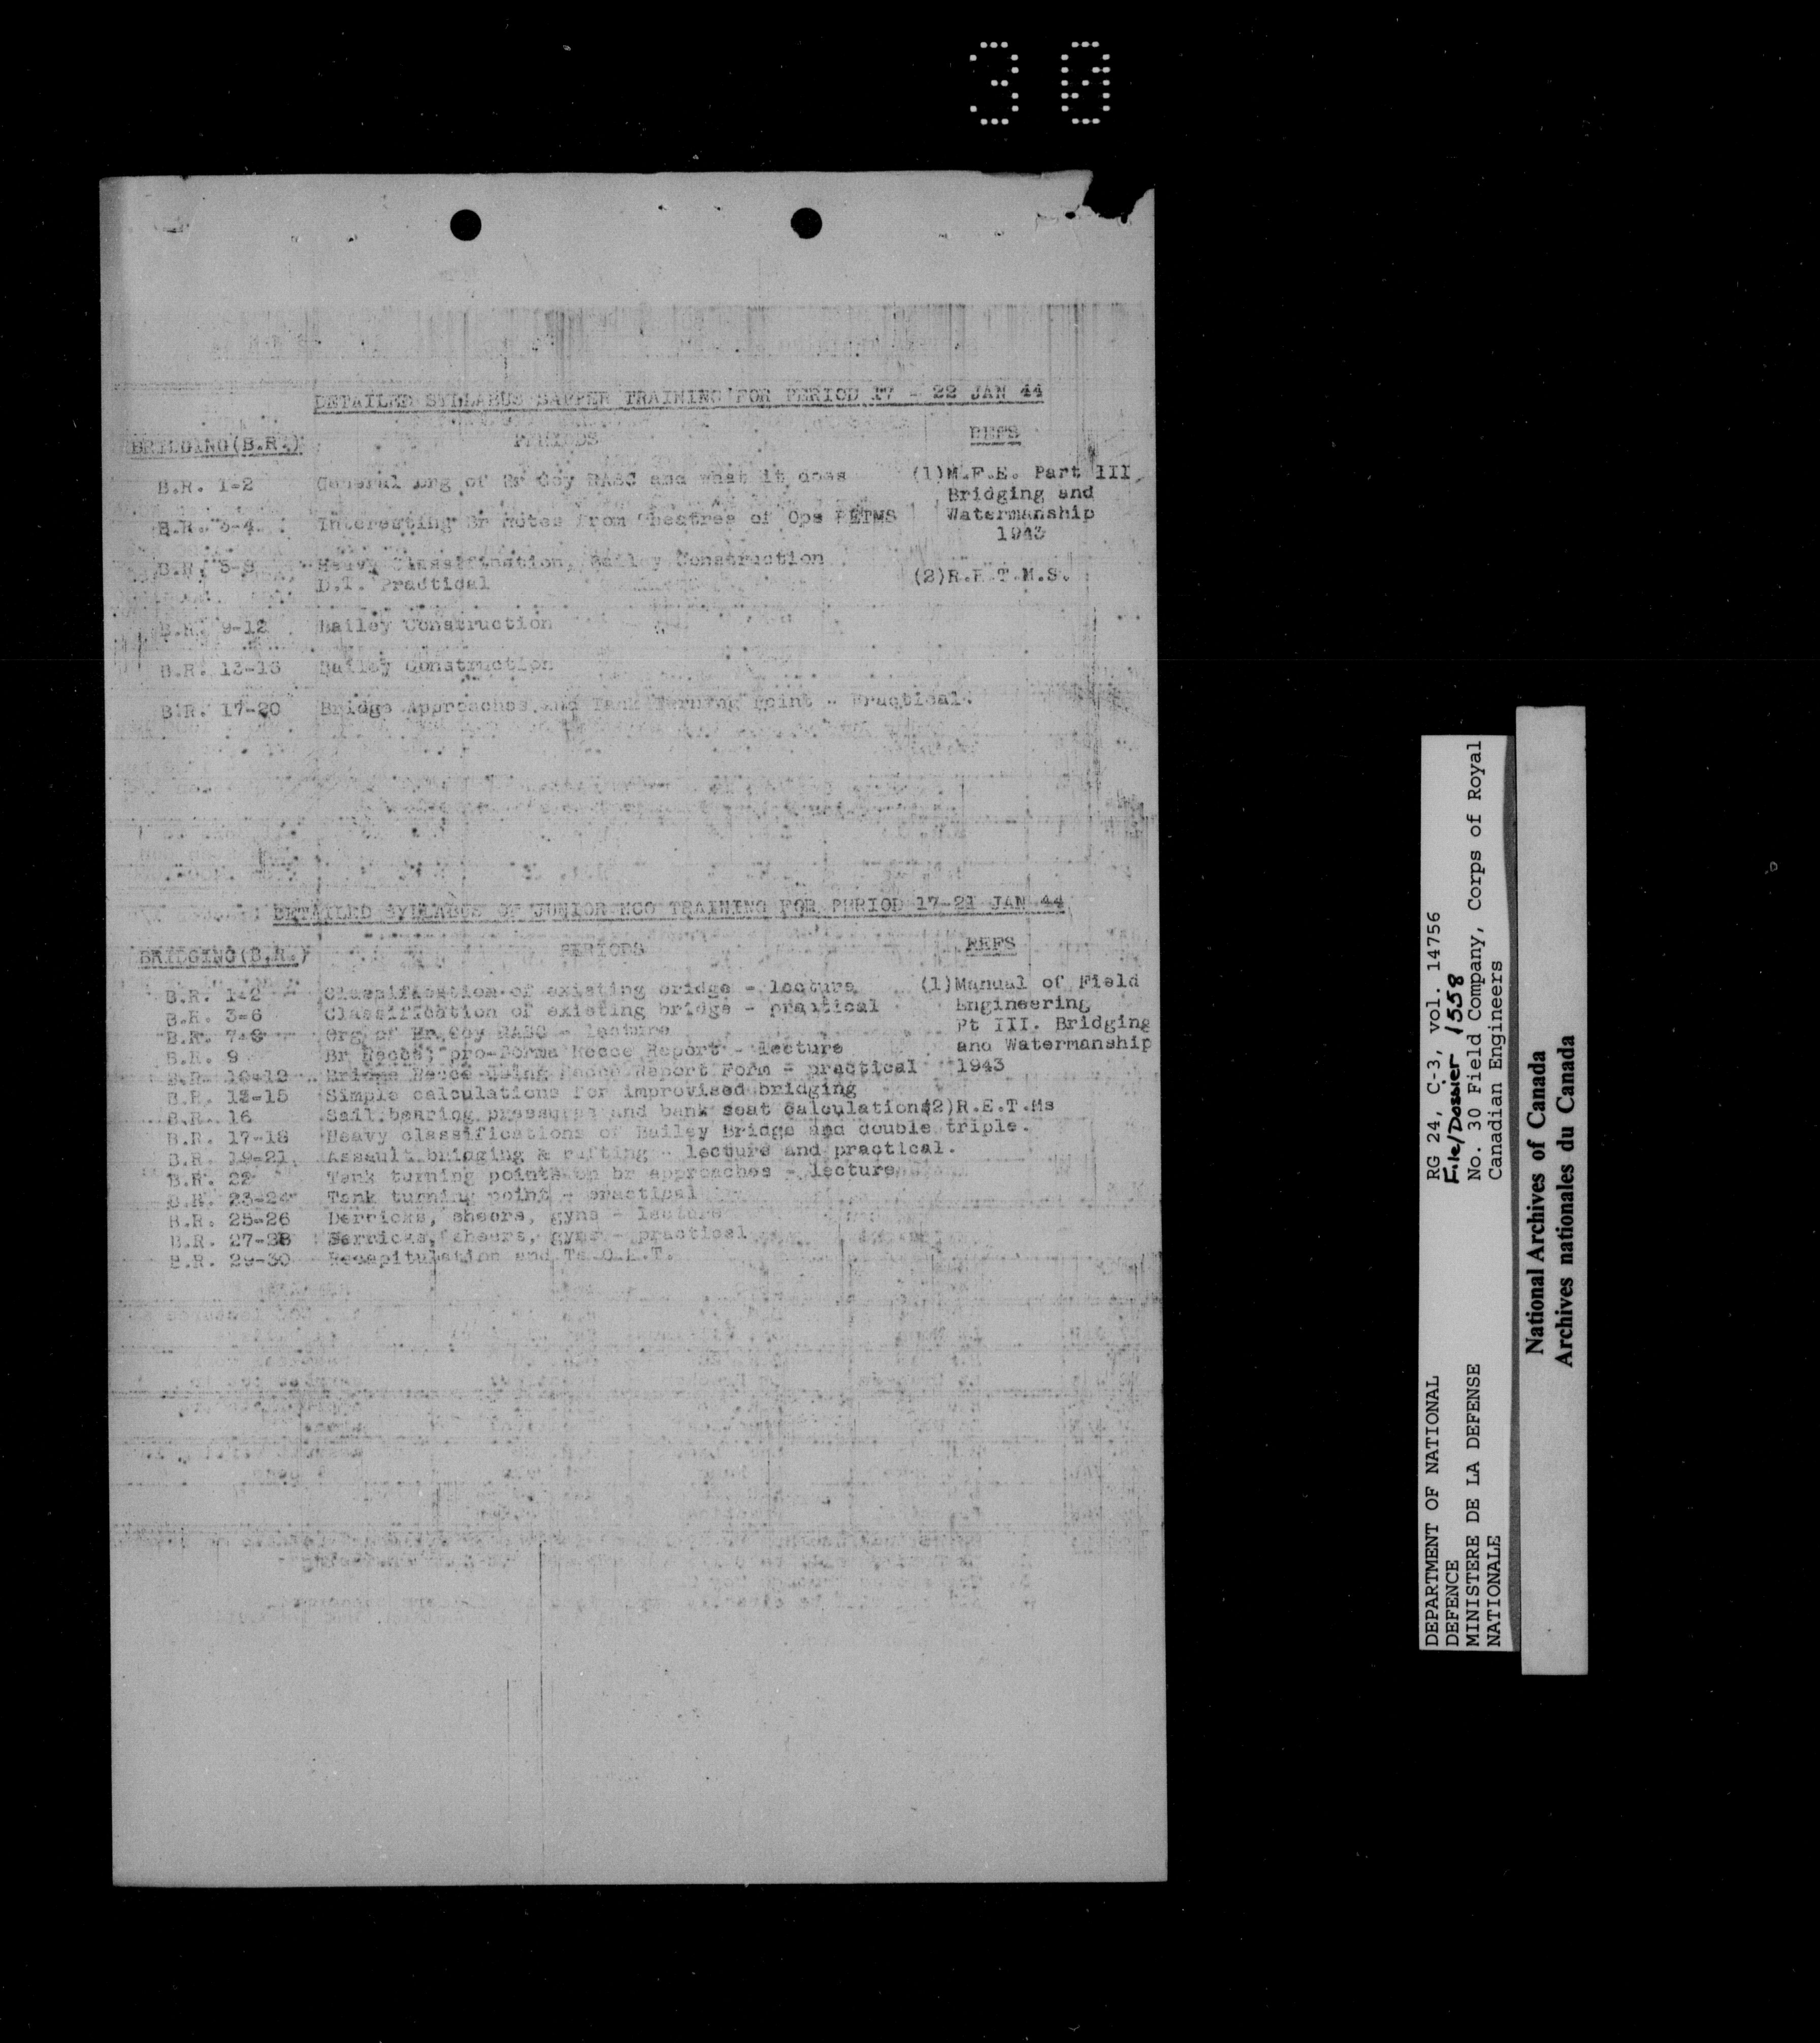 30
DETAILED SYLLABUS SAPPER TRAINING FOR PERIOD 17 - 22 JAN 44
BRIDGING(B.R.) PERIODS REFS
B.R. 1-2 General Org of Br Coy RASC and what it does (1)M.F.E. Part III
Bridging and
B.R. 3-4 Interesting Br Notes from Theatres of Ops RETMS Watermanship
1943
B.R. 5-8 Heavy Classification, Bailey Construction
D.T. Practical (2)R.E.T.M.S.
B.R. 9-12 Bailey Construction
B.R. 13-16 Bailey Construction
B.R. 17-20 Bridge Approaches and Tank Turning point - Practical.
DETAILED SYLLABUS OF JUNIOR NCO TRAINING FOR PERIOD 17-21 JAN 44
BRIDGING(B.R.) PERIODS REFS
B.R. 1-2 Classification of existing bridge - lecture (1)Manual of Field
B.R. 3-6 Classification of existing bridge - practical Engineering
B.R. 7-8 Org of Br Coy RASC - lecture Pt III. Bridging
B.R. 9 Br Recce, pro-forma Recce Report - lecture and Watermanship
B.R. 10-12 Bridge Recce using Recce Report Form - practical 1943
B.R. 13-15 Simple calculations for improvised bridging
B.R. 16 Soil bearing pressures and bank seat calculations(2)R.E.T.Ms
B.R. 17-18 Heavy classifications of Bailey Bridge and double triple.
B.R. 19-21 Assault bridging & rafting - lecture and practical.
B.R. 22 Tank turning points on br approaches - lecture
B.R. 23-24 Tank turning point - practical
B.R. 25-26 Derricks, sheers, gyns - lecture
B.R. 27-28 Derricks, sheers, gyns - practical
B.R. 29-30 Recapitulation and Ts.O.E.T.
DEPARTMENT OF NATIONAL
DEFENCE
MINISTERE DE LA DEFENSE
NATIONALE
RG 24, C-3, vol. 14756
File/Dossier 1558
No. 30 Field Company, Corps of Royal
Canadian Engineers
National Archives of Canada
Archives nationales du Canada